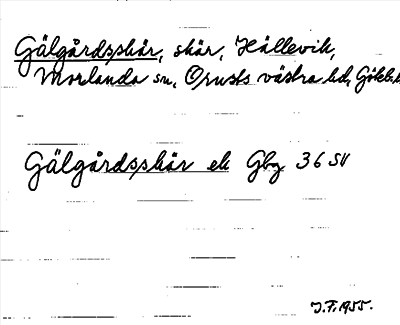 Gälgårdsskär, skär, Hällevik,
Morlanda sn, Orusts västra hd, Götebr.
Gälgårdsskär ek Gbg 36 SV
J.F. 1955.